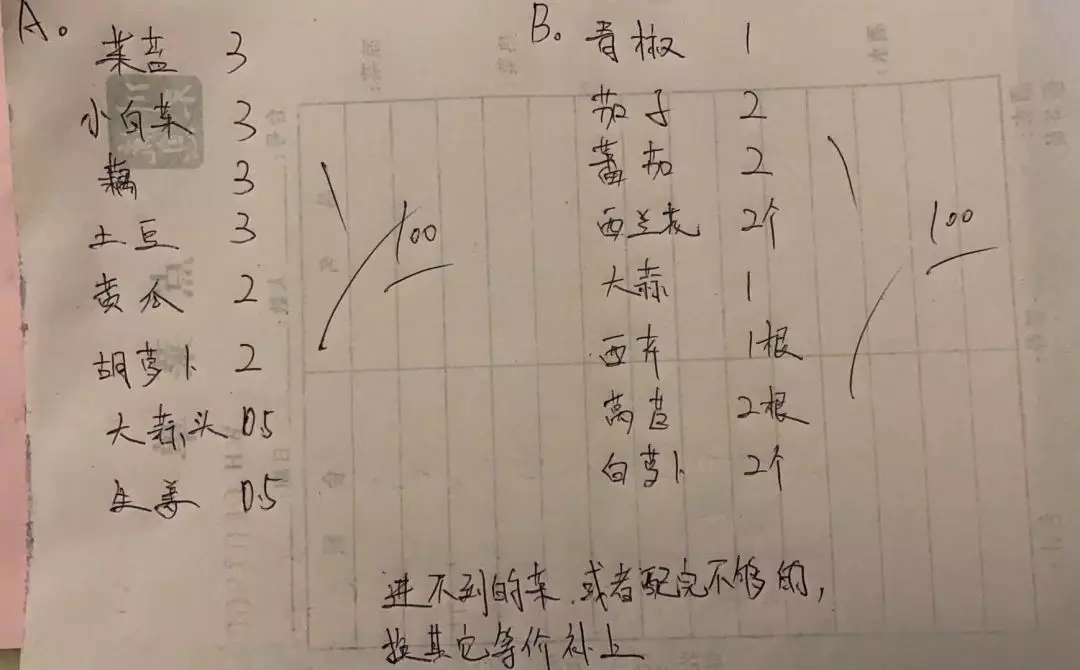 A。
菜苔 3
小白菜 3
藕 3
土豆 3
黄瓜 2
胡萝卜 2
大蒜头 0.5
生姜 0.5
100
B。
青椒 1
茄子 2
蕃茄 2
西兰花 2个
大蒜 1
西芹 1根
莴苣 2根
白萝卜 2个
100
进不到的菜.或者配完不够的,
换其它等价补上